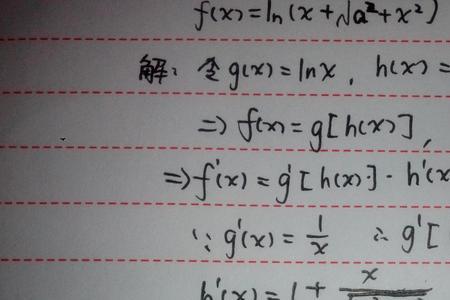 f(x)=ln(x+√a²+x²)
解：令g(x)=lnx, h(x)=
=> f(x)=g[h(x)],
=> f'(x)=g'[h(x)]·h'(x
∵ g'(x)=1/x ∴ g'[
h'(x)=1+ x/√